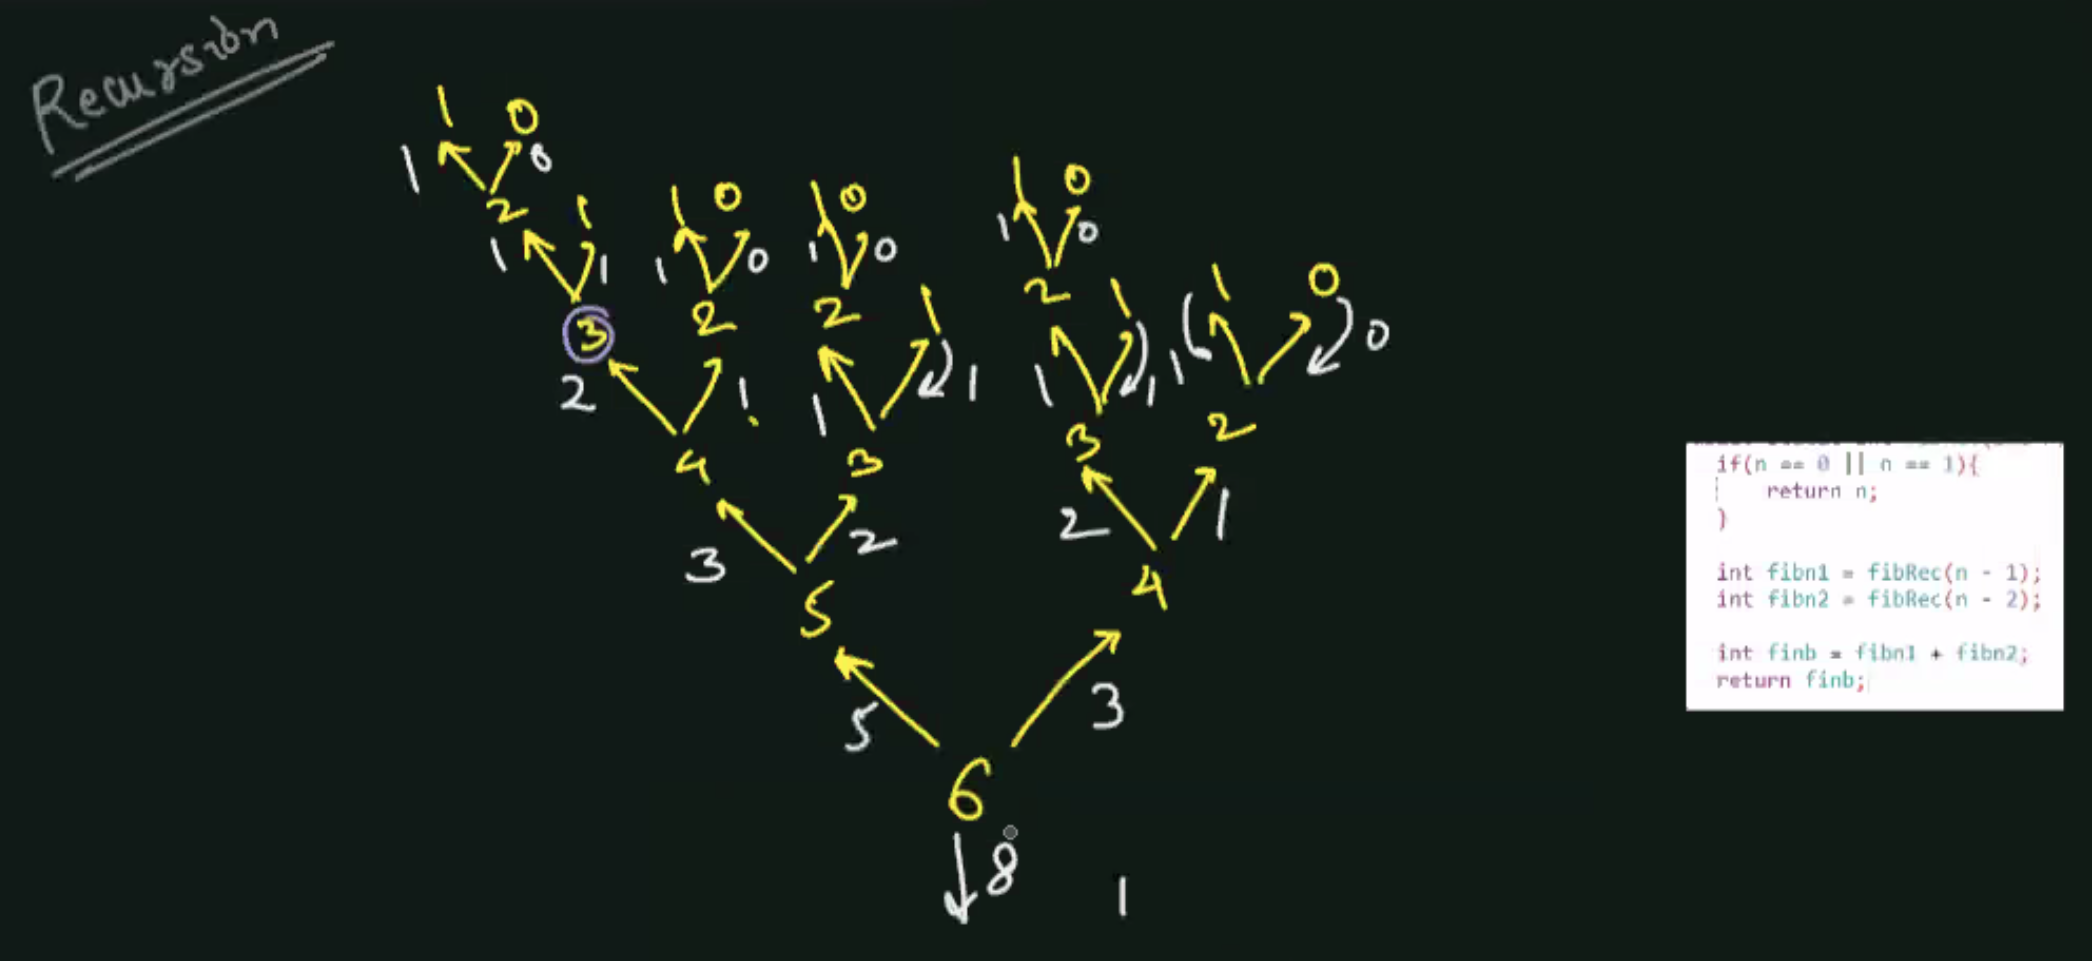 Recursion
1 0
1 0
2 1
1 1
1 0 1 0
1 0 1 0
1 0
1 0
2 2
2 1
1 0
3
2 1
1 1
1 1
1 0
3 2
4 3
3 2
2 1
5 4
5 3
6
8
1
if(n == 0 || n == 1){
return n;
}
int fibn1 = fibRec(n - 1);
int fibn2 = fibRec(n - 2);
int finb = fibn1 + fibn2;
return finb;